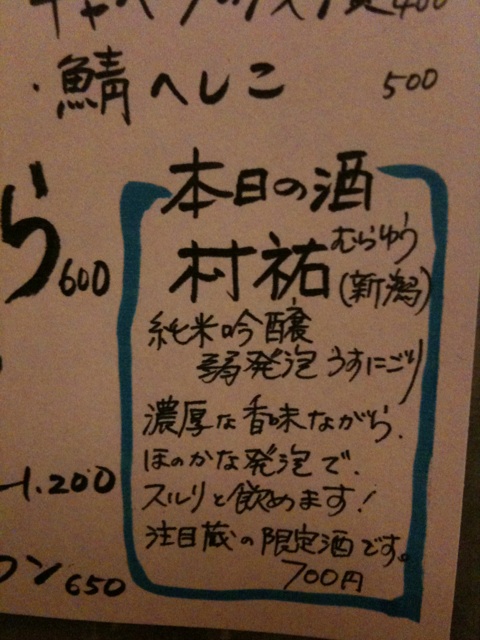 400
・鯖へしこ 500
ら 600
本日の酒
村祐 むらゆう
(新潟)
純米吟醸
弱発泡うすにごり
濃厚な香味ながら、
ほのかな発泡で、
スルリと飲めます!
注目蔵の限定酒です。
700円
1.200
ン 650